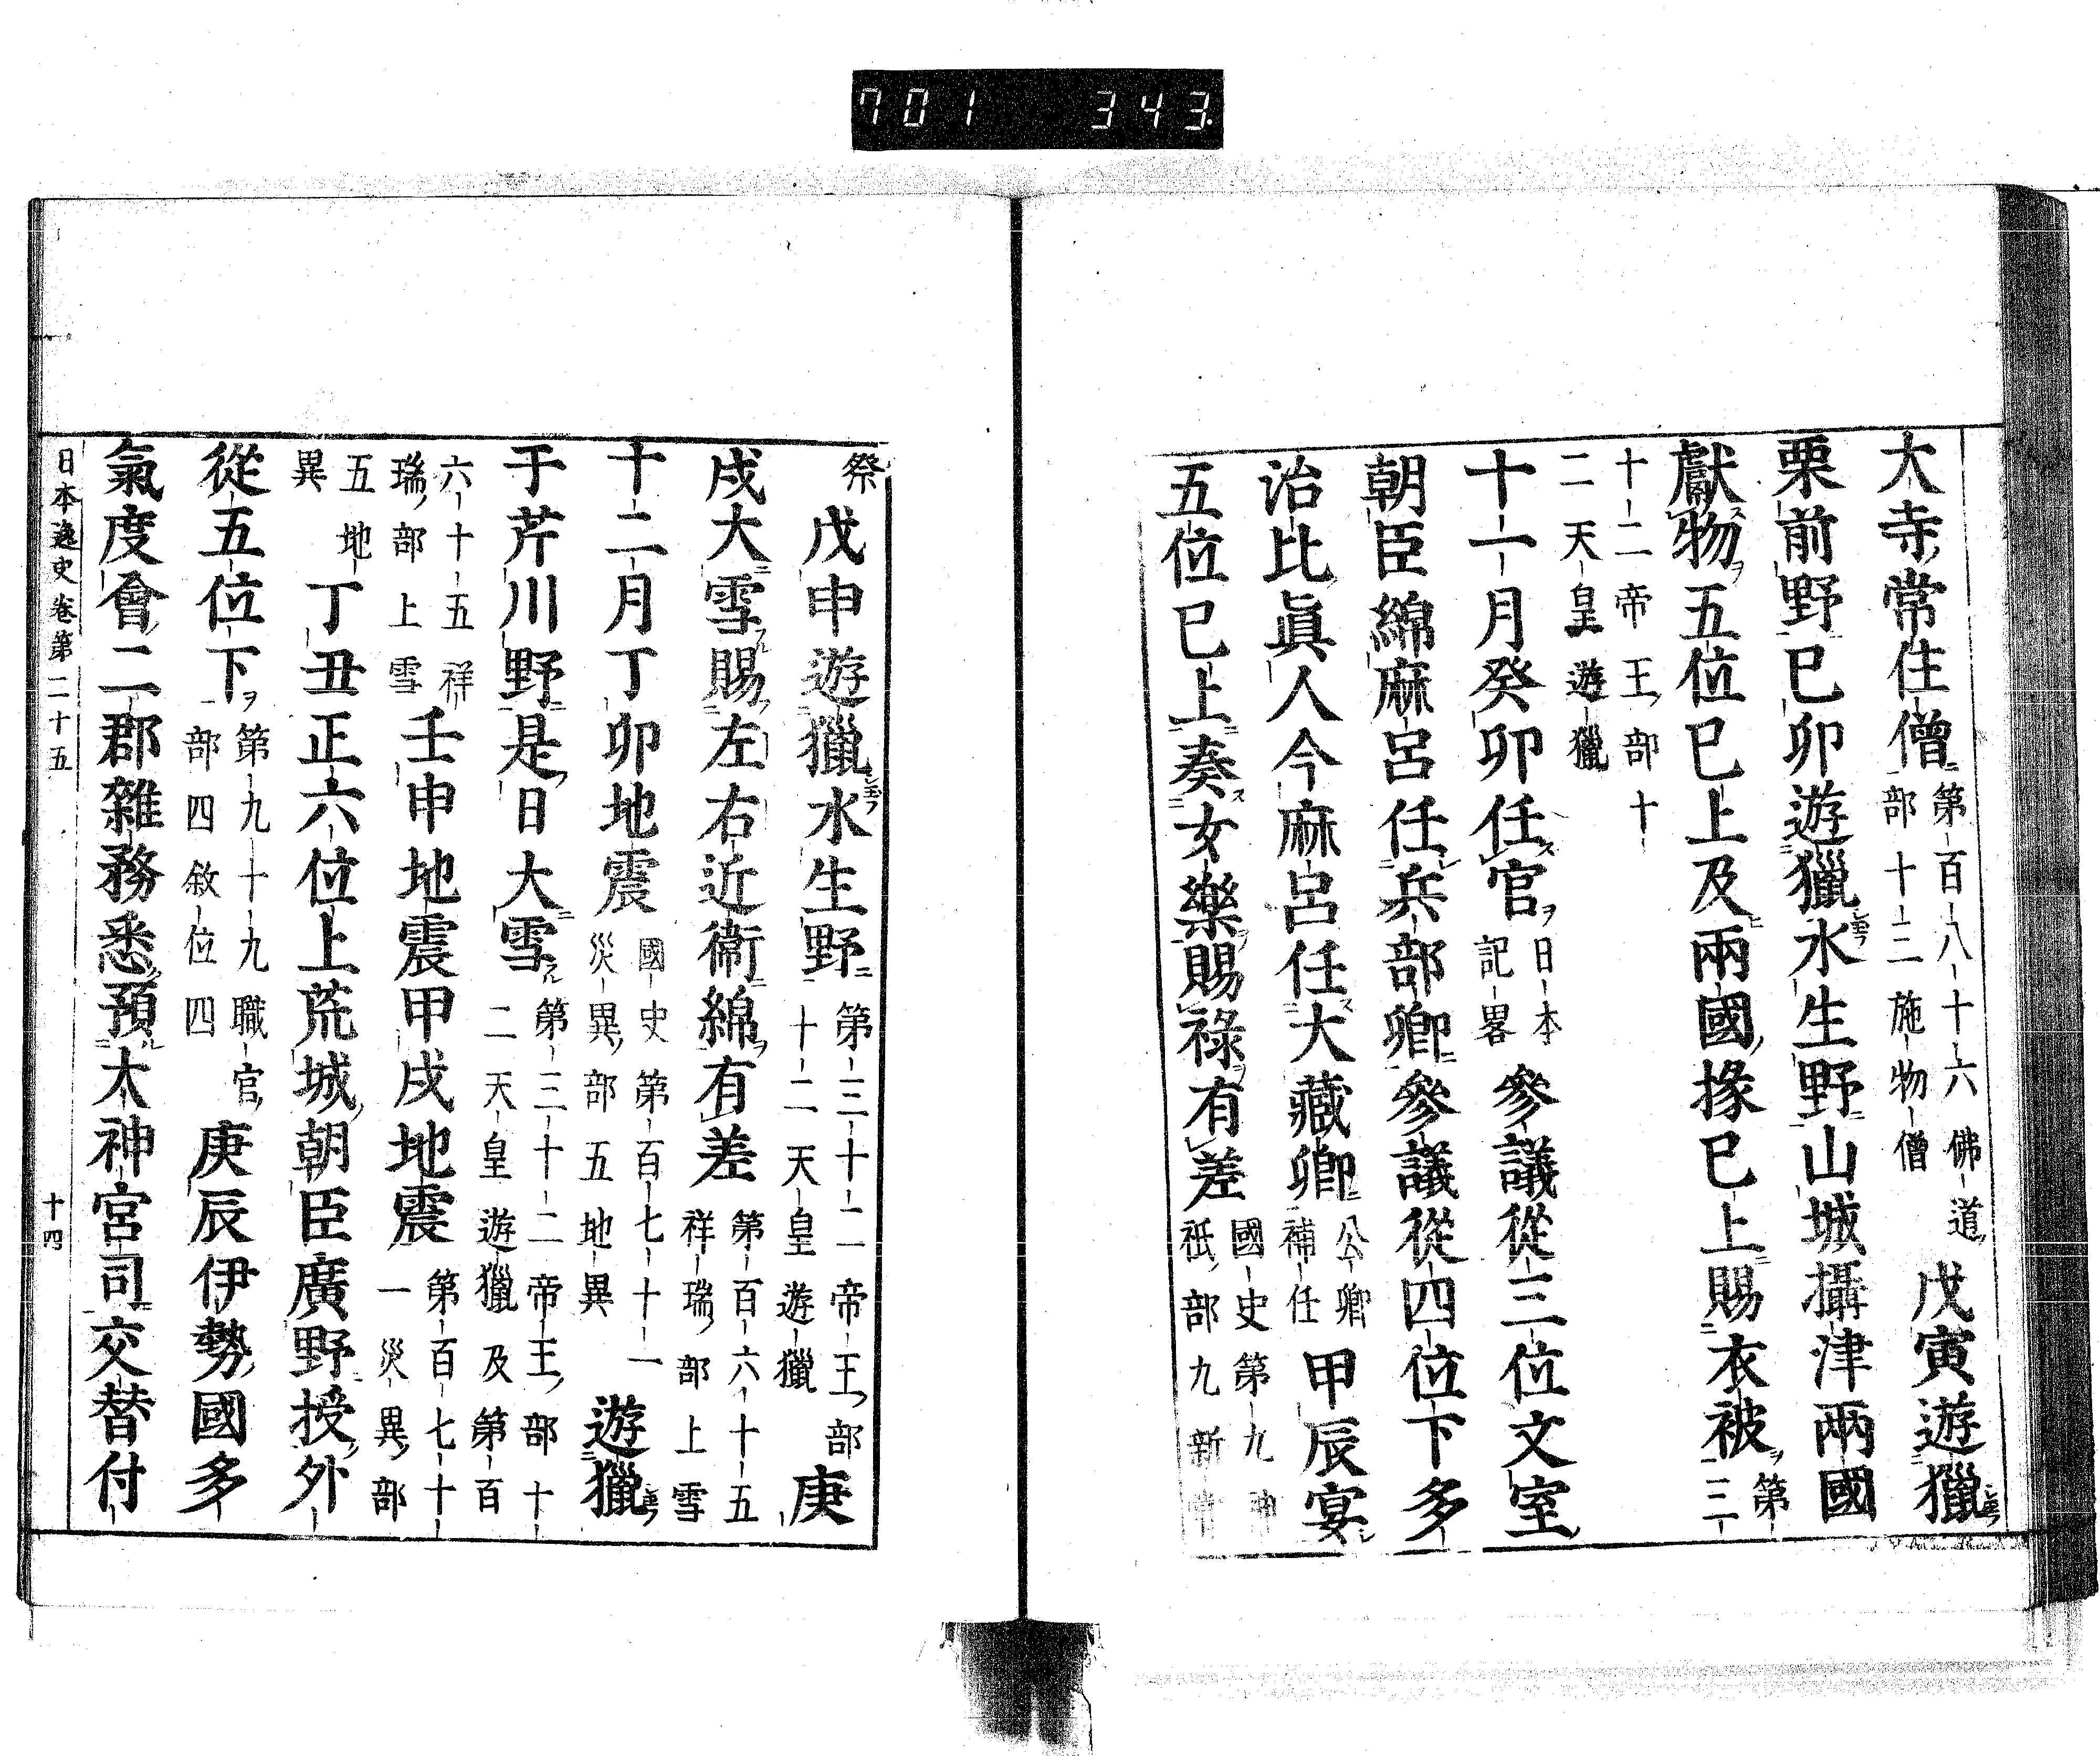 701 343
大寺常住僧第百八十六佛道部十三施物僧戊寅遊獵
栗前野己卯遊獵水生野山城攝津兩國
獻物五位已上及兩國掾已上賜衣被第三
十二帝王部十二天皇遊獵
十一月癸卯任官日本記畧參議從三位文室
朝臣綿麻呂任兵部卿參議從四位下多
治比眞人今麻呂任大藏卿公卿補任甲辰宴
五位已上奏女樂賜祿有差國史第九神祇部九新嘗
祭戊申遊獵水生野第三十二帝王部十二天皇遊獵庚
戌大雪賜左右近衞綿有差第百六十五祥瑞部上雪
十二月丁卯地震國史第百七十一災異部五地異遊獵
于芹川野是日大雪第三十二帝王部十二天皇遊獵及第百
六十五祥瑞部上雪壬申地震甲戌地震第百七十一災異部
五地異丁丑正六位上荒城朝臣廣野授外
從五位下第九十九職官部四敘位四庚辰伊勢國多
氣度會二郡雜務悉預大神宮司交替付
日本逸史卷第二十五 十四